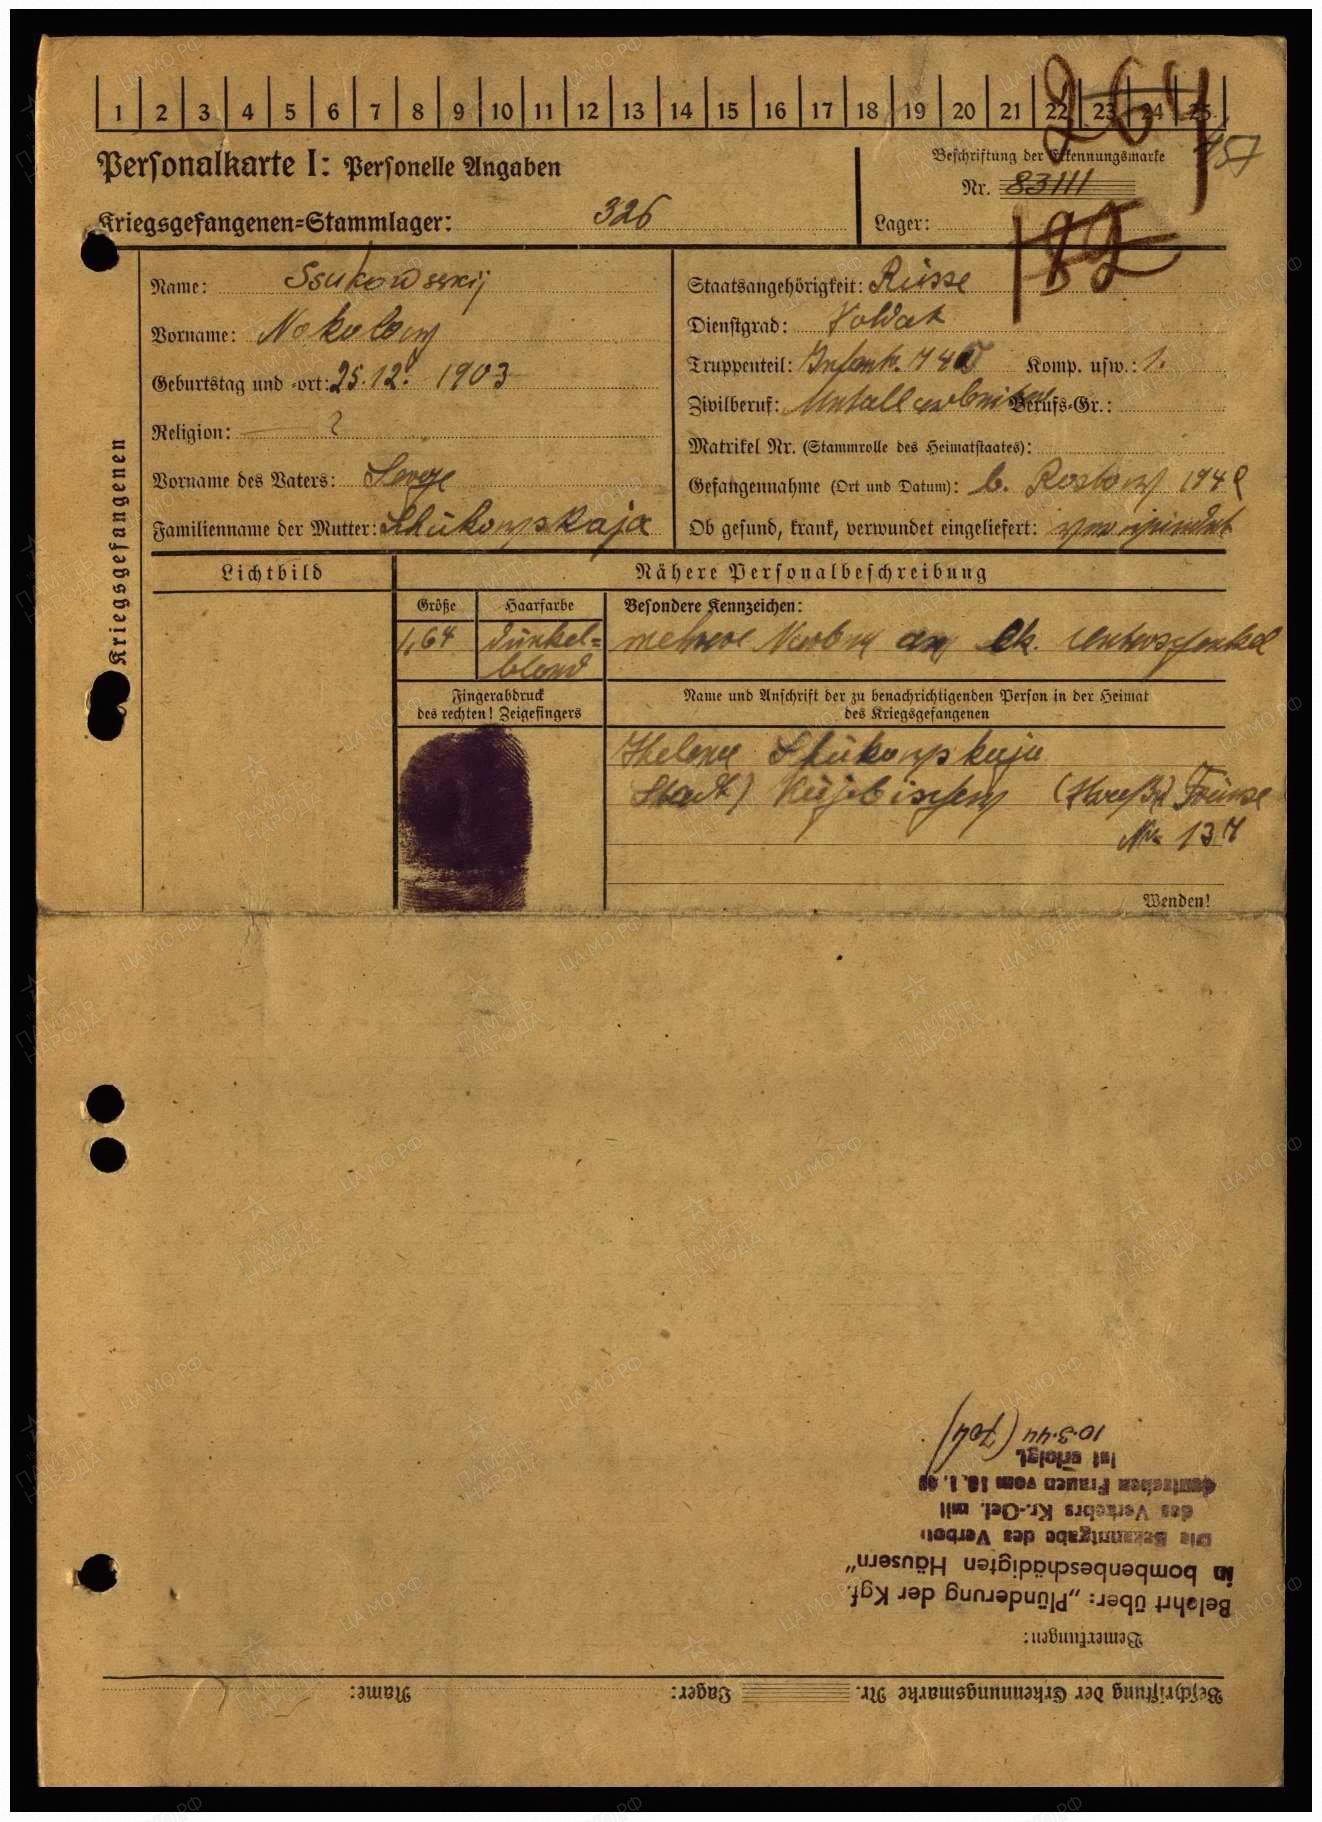 1 2 3 4 5 6 7 8 9 10 11 12 13 14 15 16 17 18 19 20 21 22 23 24 25
264
157
Personalkarte I: Personelle Angaben
Beschriftung der Erkennungsmarke
Nr. 83111
Kriegsgefangenen-Stammlager: 326
Lager:
182
Kriegsgefangenen
Name: Ssukowskij
Staatsangehörigkeit: Russe
Vorname:
Dienstgrad: Soldat
Geburtstag und -ort: 25.12. 1903
Truppenteil: Infantr. 740 Komp. usw.: 1.
Religion: ?
Zivilberuf: Metallarbeiter Berufs-Gr.:
Vorname des Vaters: Serge
Matrikel Nr. (Stammrolle des Heimatstaates):
Gefangennahme (Ort und Datum): b. Rostow 194
Familienname der Mutter: Shukowskaja
Ob gesund, krank, verwundet eingeliefert: verwundet
Lichtbild
Nähere Personalbeschreibung
Größe Haarfarbe Besondere Kennzeichen:
1,64 dunkel=
blond
mehrere Narben am lk. Unterschenkel
Fingerabdruck
des rechten! Zeigefingers
Name und Anschrift der zu benachrichtigenden Person in der Heimat
des Kriegsgefangenen
Helene Shukowskaja
Stadt) Kujbischew (Straße) Frunse
Nr. 137
Wenden!
Beschriftung der Erkennungsmarke Nr. Lager: Name:
Bemerkungen:
Belehrt über: „Plünderung der Kgf.
in bombenbeschädigten Häusern"
Die Bekanntgabe des Verbot
des Verkehrs Kr.-Gef. mit
deutschen Frauen vom
ist erfolgt
10.3.44
ЦАМО.РФ
ПАМЯТЬ
НАРОДА